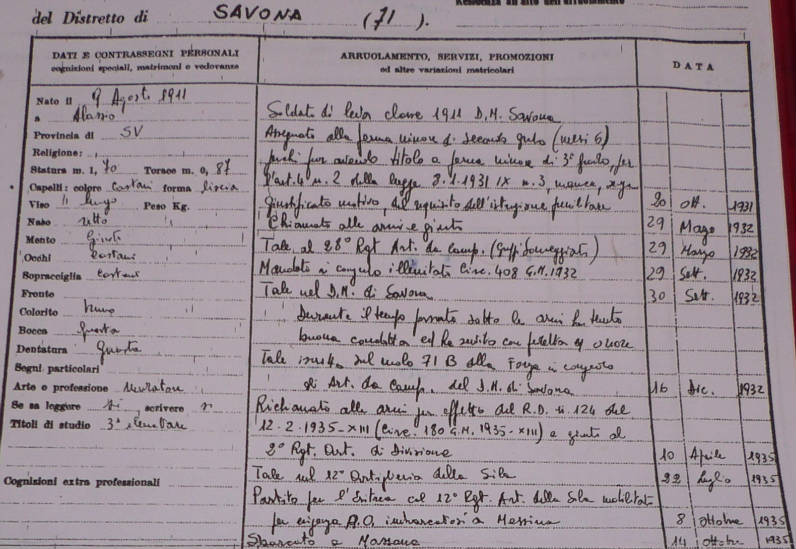 del Distretto di SAVONA (71).
DATI E CONTRASSEGNI PERSONALI
cognizioni speciali, matrimoni e vedovanze
ARRUOLAMENTO, SERVIZI, PROMOZIONI
ed altre variazioni matricolari
DATA
Nato il 9 Agosto 1911
a Alassio
Provincia di SV
Religione:
Statura m. 1, 70 Torace m. 0, 87
Capelli: colore castani forma liscia
Viso lungo Peso Kg.
Naso retto
Mento Giusto
Occhi castani
Sopracciglia castane
Fronte
Colorito bruno
Bocca Giusta
Dentatura Guasta
Segni particolari
Arte o professione Muratore
Se sa leggere si scrivere si
Titoli di studio 3ª elementare
Cognizioni extra professionali
Soldato di leva classe 1911 D.M. Savona
Assegnato alla ferma minore di secondo grado (mesi 6)
perchè pur avendo titolo a ferma minore di 3° grado, per
l'art. 4 n. 2 della legge 8.1.1931 IX n. 3, manca, senza
giustificato motivo, del requisito dell'istruzione premilitare 20 ott. 1931
Chiamato alle armi e giunto 29 Marzo 1932
Tale al 28° Rgt Art. da Camp. 29 Marzo 1932
Mandato in congedo illimitato Circ. 408 G.M. 1932 29 Sett. 1932
Tale nel D.M. di Savona 30 Sett. 1932
Durante il tempo passato sotto le armi ha tenuto
buona condotta ed ha servito con fedeltà ed onore
Tale iscritto sul ruolo 71 B della Forza in congedo
di Art. da Camp. del D.M. di Savona 16 Dic. 1932
Richiamato alle armi per effetto del R.D. n. 124 del
12-2-1935-XIII (Circ. 180 G.M. 1935-XIII) e giunto al
2° Rgt. Art. di Divisione 10 Aprile 1935
Tale nel 12° Artiglieria della Sila 22 Luglio 1935
Partito per l'Eritrea col 12° Rgt. Art. della Sila mobilitato
per esigenza A.O. imbarcatosi a Messina 8 Ottobre 1935
Sbarcato a Massaua 14 Ottobre 1935